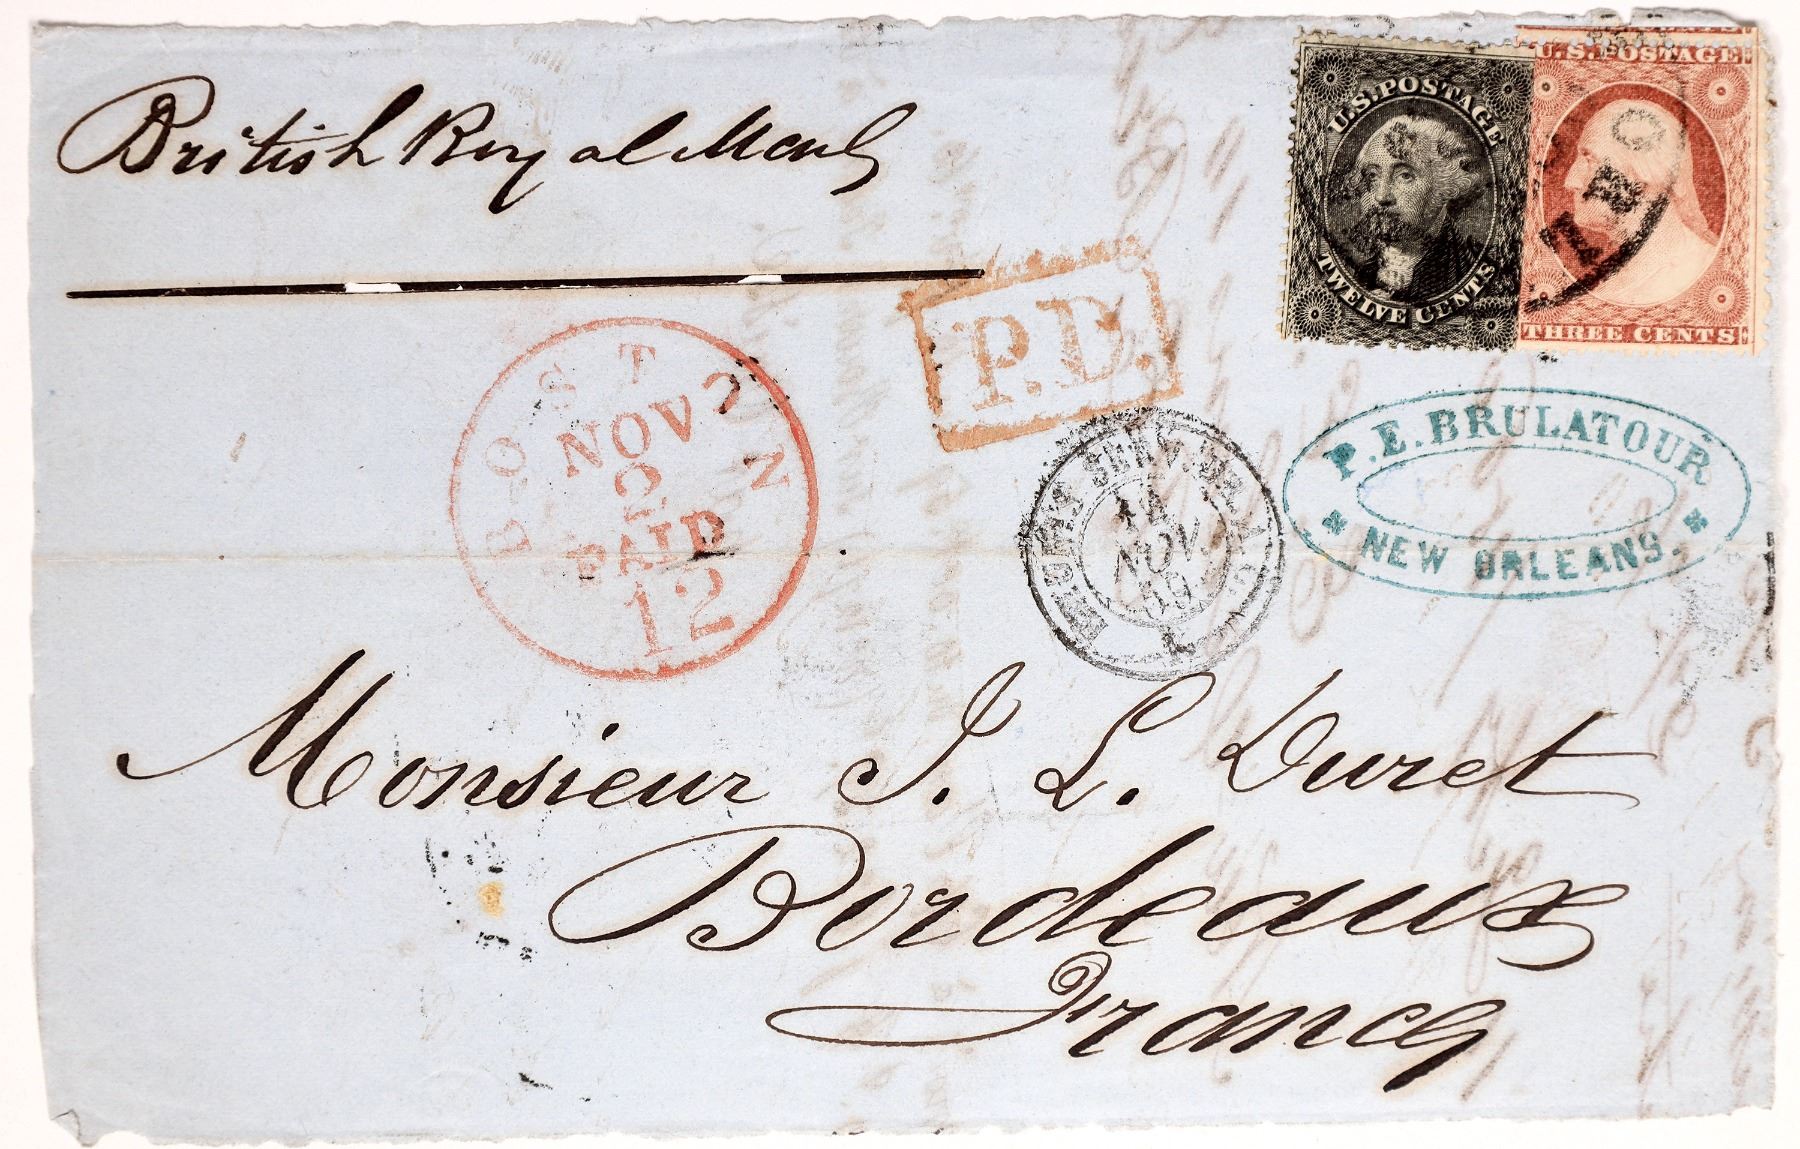 British Royal Mail
U.S. POSTAGE
TWELVE CENTS
U.S. POSTAGE
THREE CENTS
P.D.
BOSTON
NOV
2
PAID
12
SERV.
14
NOV.
59
P.E. BRULATOUR
NEW ORLEANS.
Monsieur J. L. Duret
Bordeaux
France